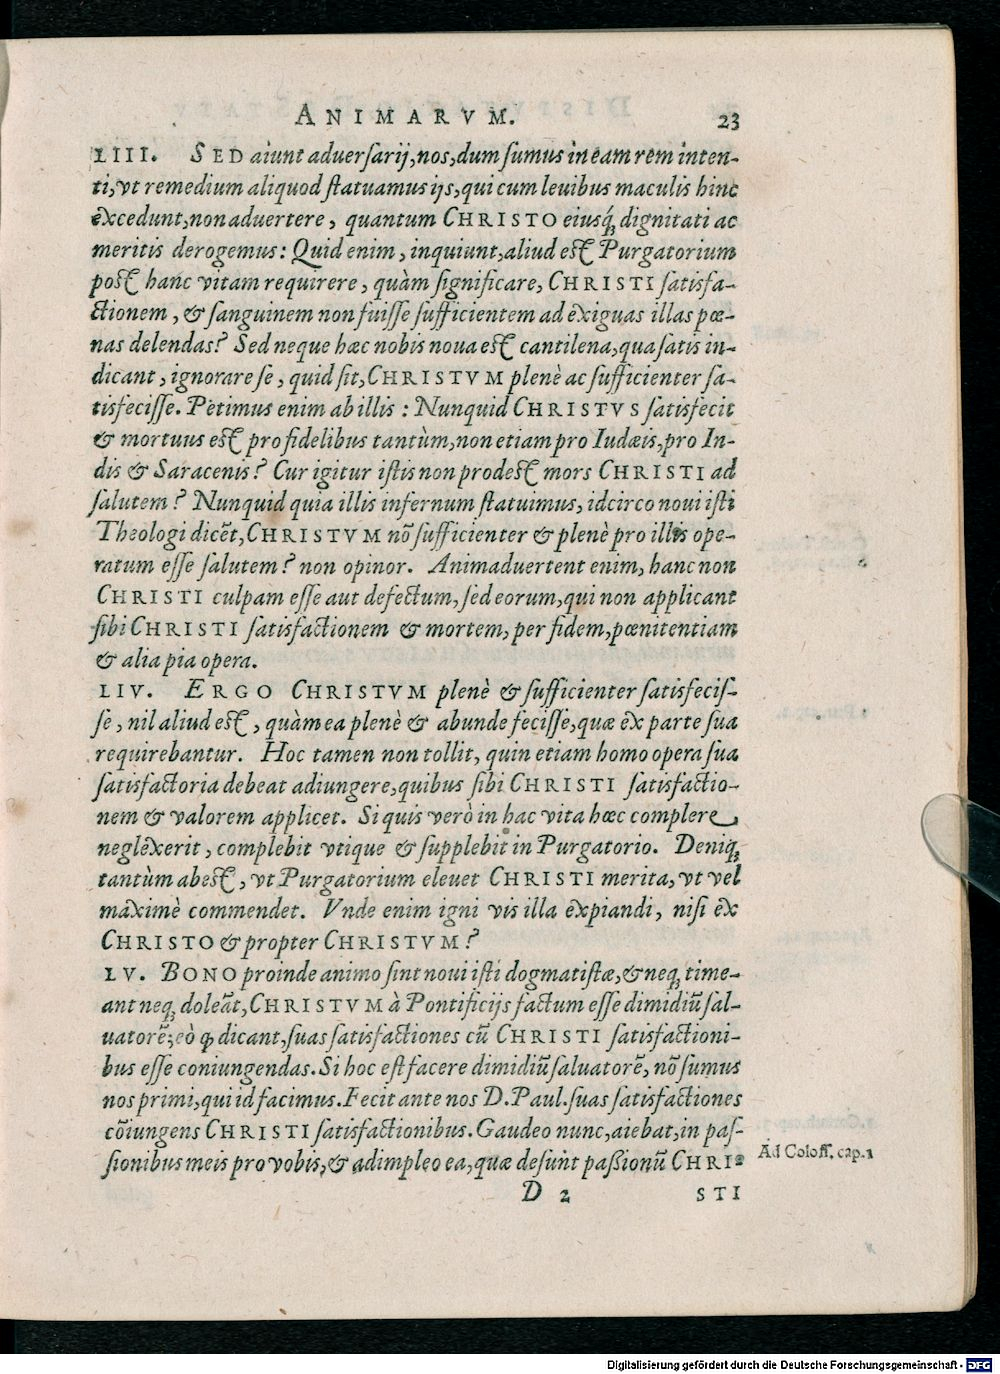 ANIMARVM. 23
LIII. SED aiunt aduersarij, nos, dum sumus in eam rem inten-
ti, vt remedium aliquod statuamus ijs, qui cum leuibus maculis hinc
excedunt, non aduertere, quantum CHRISTO eiusq́; dignitati ac
meritis derogemus: Quid enim, inquiunt, aliud est Purgatorium
post hanc vitam requirere, quàm significare, CHRISTI satisfa-
ctionem, & sanguinem non fuisse sufficientem ad exiguas illas pœ-
nas delendas? Sed neque hæc nobis noua est cantilena, qua satis in-
dicant, ignorare se, quid sit, CHRISTVM plenè ac sufficienter sa-
tisfecisse. Petimus enim ab illis: Nunquid CHRISTVS satisfecit
& mortuus est pro fidelibus tantùm, non etiam pro Iudæis, pro In-
dis & Saracenis? Cur igitur istis non prodest mors CHRISTI ad
salutem? Nunquid quia illis infernum statuimus, idcirco noui isti
Theologi dicẽt, CHRISTVM nõ sufficienter & plenè pro illis ope-
ratum esse salutem? non opinor. Animaduertent enim, hanc non
CHRISTI culpam esse aut defectum, sed eorum, qui non applicant
sibi CHRISTI satisfactionem & mortem, per fidem, pœnitentiam
& alia pia opera.
LIV. ERGO CHRISTVM plenè & sufficienter satisfecis-
se, nil aliud est, quàm ea plenè & abunde fecisse, quæ ex parte sua
requirebantur. Hoc tamen non tollit, quin etiam homo opera sua
satisfactoria debeat adiungere, quibus sibi CHRISTI satisfactio-
nem & valorem applicet. Si quis verò in hac vita hæc complere
neglexerit, complebit vtique & supplebit in Purgatorio. Deniq;
tantùm abest, vt Purgatorium eleuet CHRISTI merita, vt vel
maximè commendet. Vnde enim igni vis illa expiandi, nisi ex
CHRISTO & propter CHRISTVM?
LV. BONO proinde animo sint noui isti dogmatistæ, & neq; time-
ant neq; doleãt, CHRISTVM à Pontificijs factum esse dimidiũ sal-
uatorẽ; eò ꝙ dicant, suas satisfactiones cũ CHRISTI satisfactioni-
bus esse coniungendas. Si hoc est facere dimidiũ saluatorẽ, nõ sumus
nos primi, qui id facimus. Fecit ante nos D. Paul. suas satisfactiones
cõiungens CHRISTI satisfactionibus. Gaudeo nunc, aiebat, in pas-
sionibus meis pro vobis, & adimpleo ea, quæ desunt passionũ CHRI-
Ad Coloss. cap. 1
D 2 STI
Digitalisierung gefördert durch die Deutsche Forschungsgemeinschaft - DFG